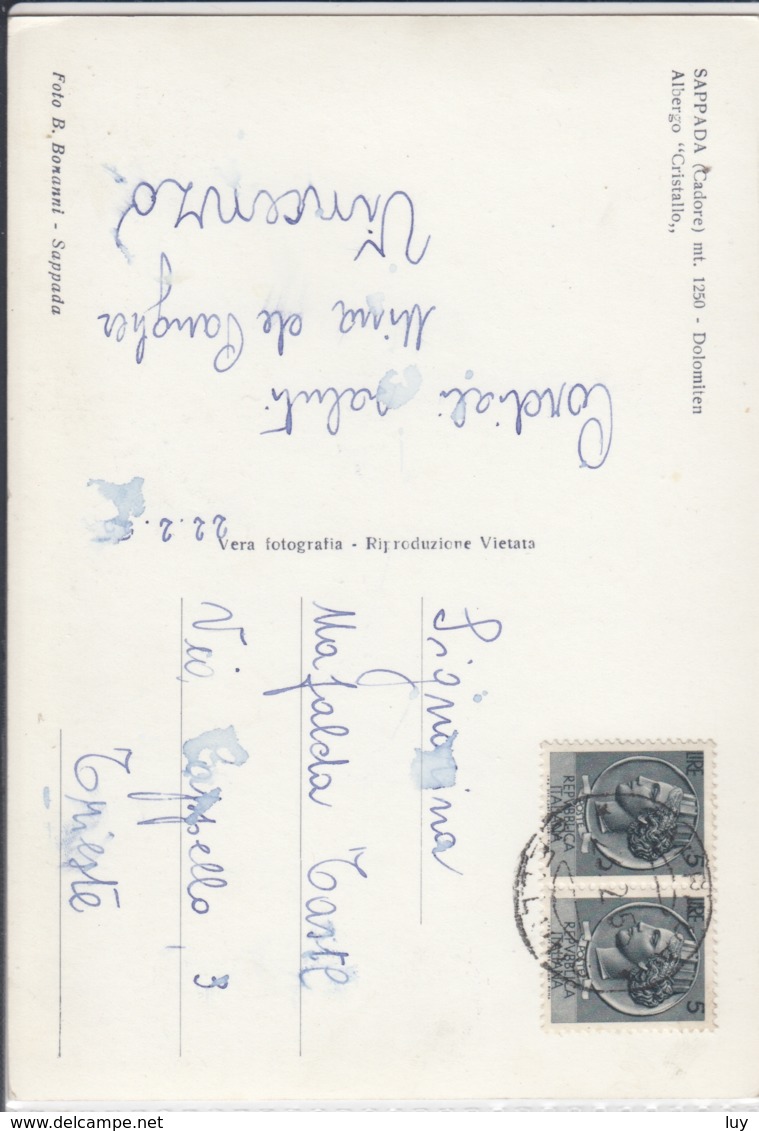 SAPPADA (Cadore) mt. 1250 - Dolomiten
Albergo “Cristallo„
Cordiali saluti
Mina de
Vincenzo
22.2.
Foto B. Bonanni - Sappada
Vera fotografia - Riproduzione Vietata
LIRE 5
REPVBBLICA
ITALIANA
POSTE
LIRE 5
REPVBBLICA
ITALIANA
POSTE
Signorina
Mafalda
Via Cappello, 3
Trieste
delcampe.net
luy